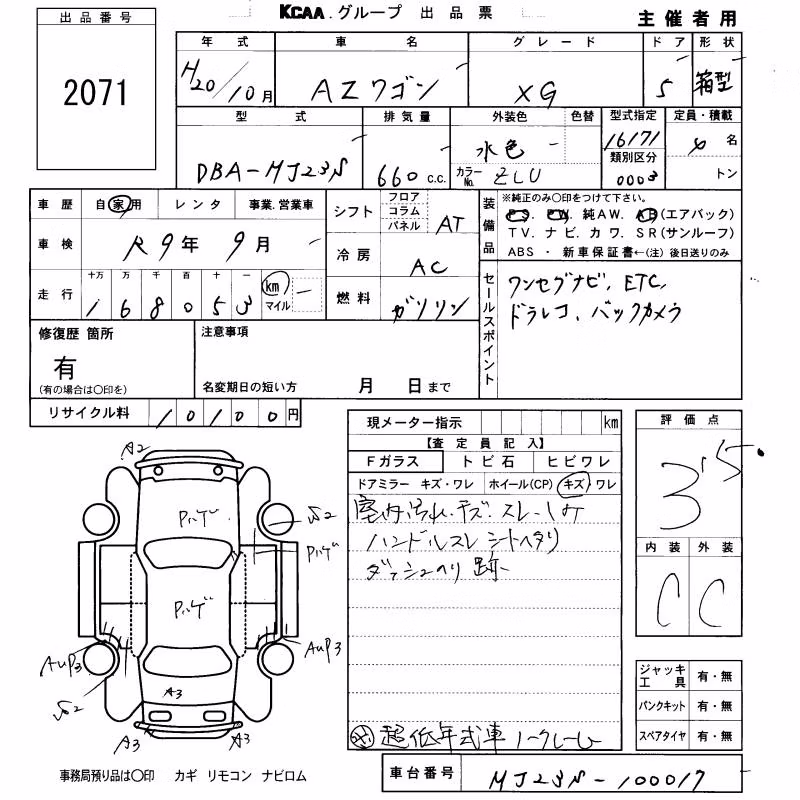 KCAA.グループ 出品票
主催者用
出品番号
2071
年式 車名 グレード ドア 形状
H20/10月 AZワゴン XG 5 箱型
型式 排気量 外装色 色替 型式指定 定員・積載
DBA-MJ23S 660 c.c. 水色 16171 4名
類別区分
カラーNo. ZLU 0003 トン
車歴 自家用 レンタ 事業.営業車
車検 R9年9月
走行 十万 万 千 百 十 一
168053 km マイル
シフト フロア コラム パネル AT
冷房 AC
燃料 ガソリン
装備品
※純正のみ〇印をつけて下さい。
PS. PW. 純AW. AB(エアバック)
TV. ナビ. カワ. SR(サンルーフ)
ABS ・ 新車保証書←(注) 後日送りのみ
セールスポイント
ワンセグナビ, ETC,
ドラレコ, バックカメラ
修復歴 箇所
有
(有の場合は〇印を)
注意事項
名変期日の短い方 月 日まで
リサイクル料 10100円
現メーター指示 km
【査定員記入】
Fガラス トビ石 ヒビワレ
ドアミラー キズ・ワレ ホイール(CP) キズ/ワレ
室内汚れ.キズ.スレ.
ハンドルスレ シートヘタリ
ダッシュのり跡
超低年式車 ノークレーム
評価点
3.5
内装 外装
C C
ジャッキ工具 有・無
パンクキット 有・無
スペアタイヤ 有・無
A2
S2
Pハゲ
Pハゲ
Pハゲ
AUP3
AUP3
S2
A3
A3
A3
事務局預り品は〇印 カギ リモコン ナビロム
車台番号 MJ23S-100017